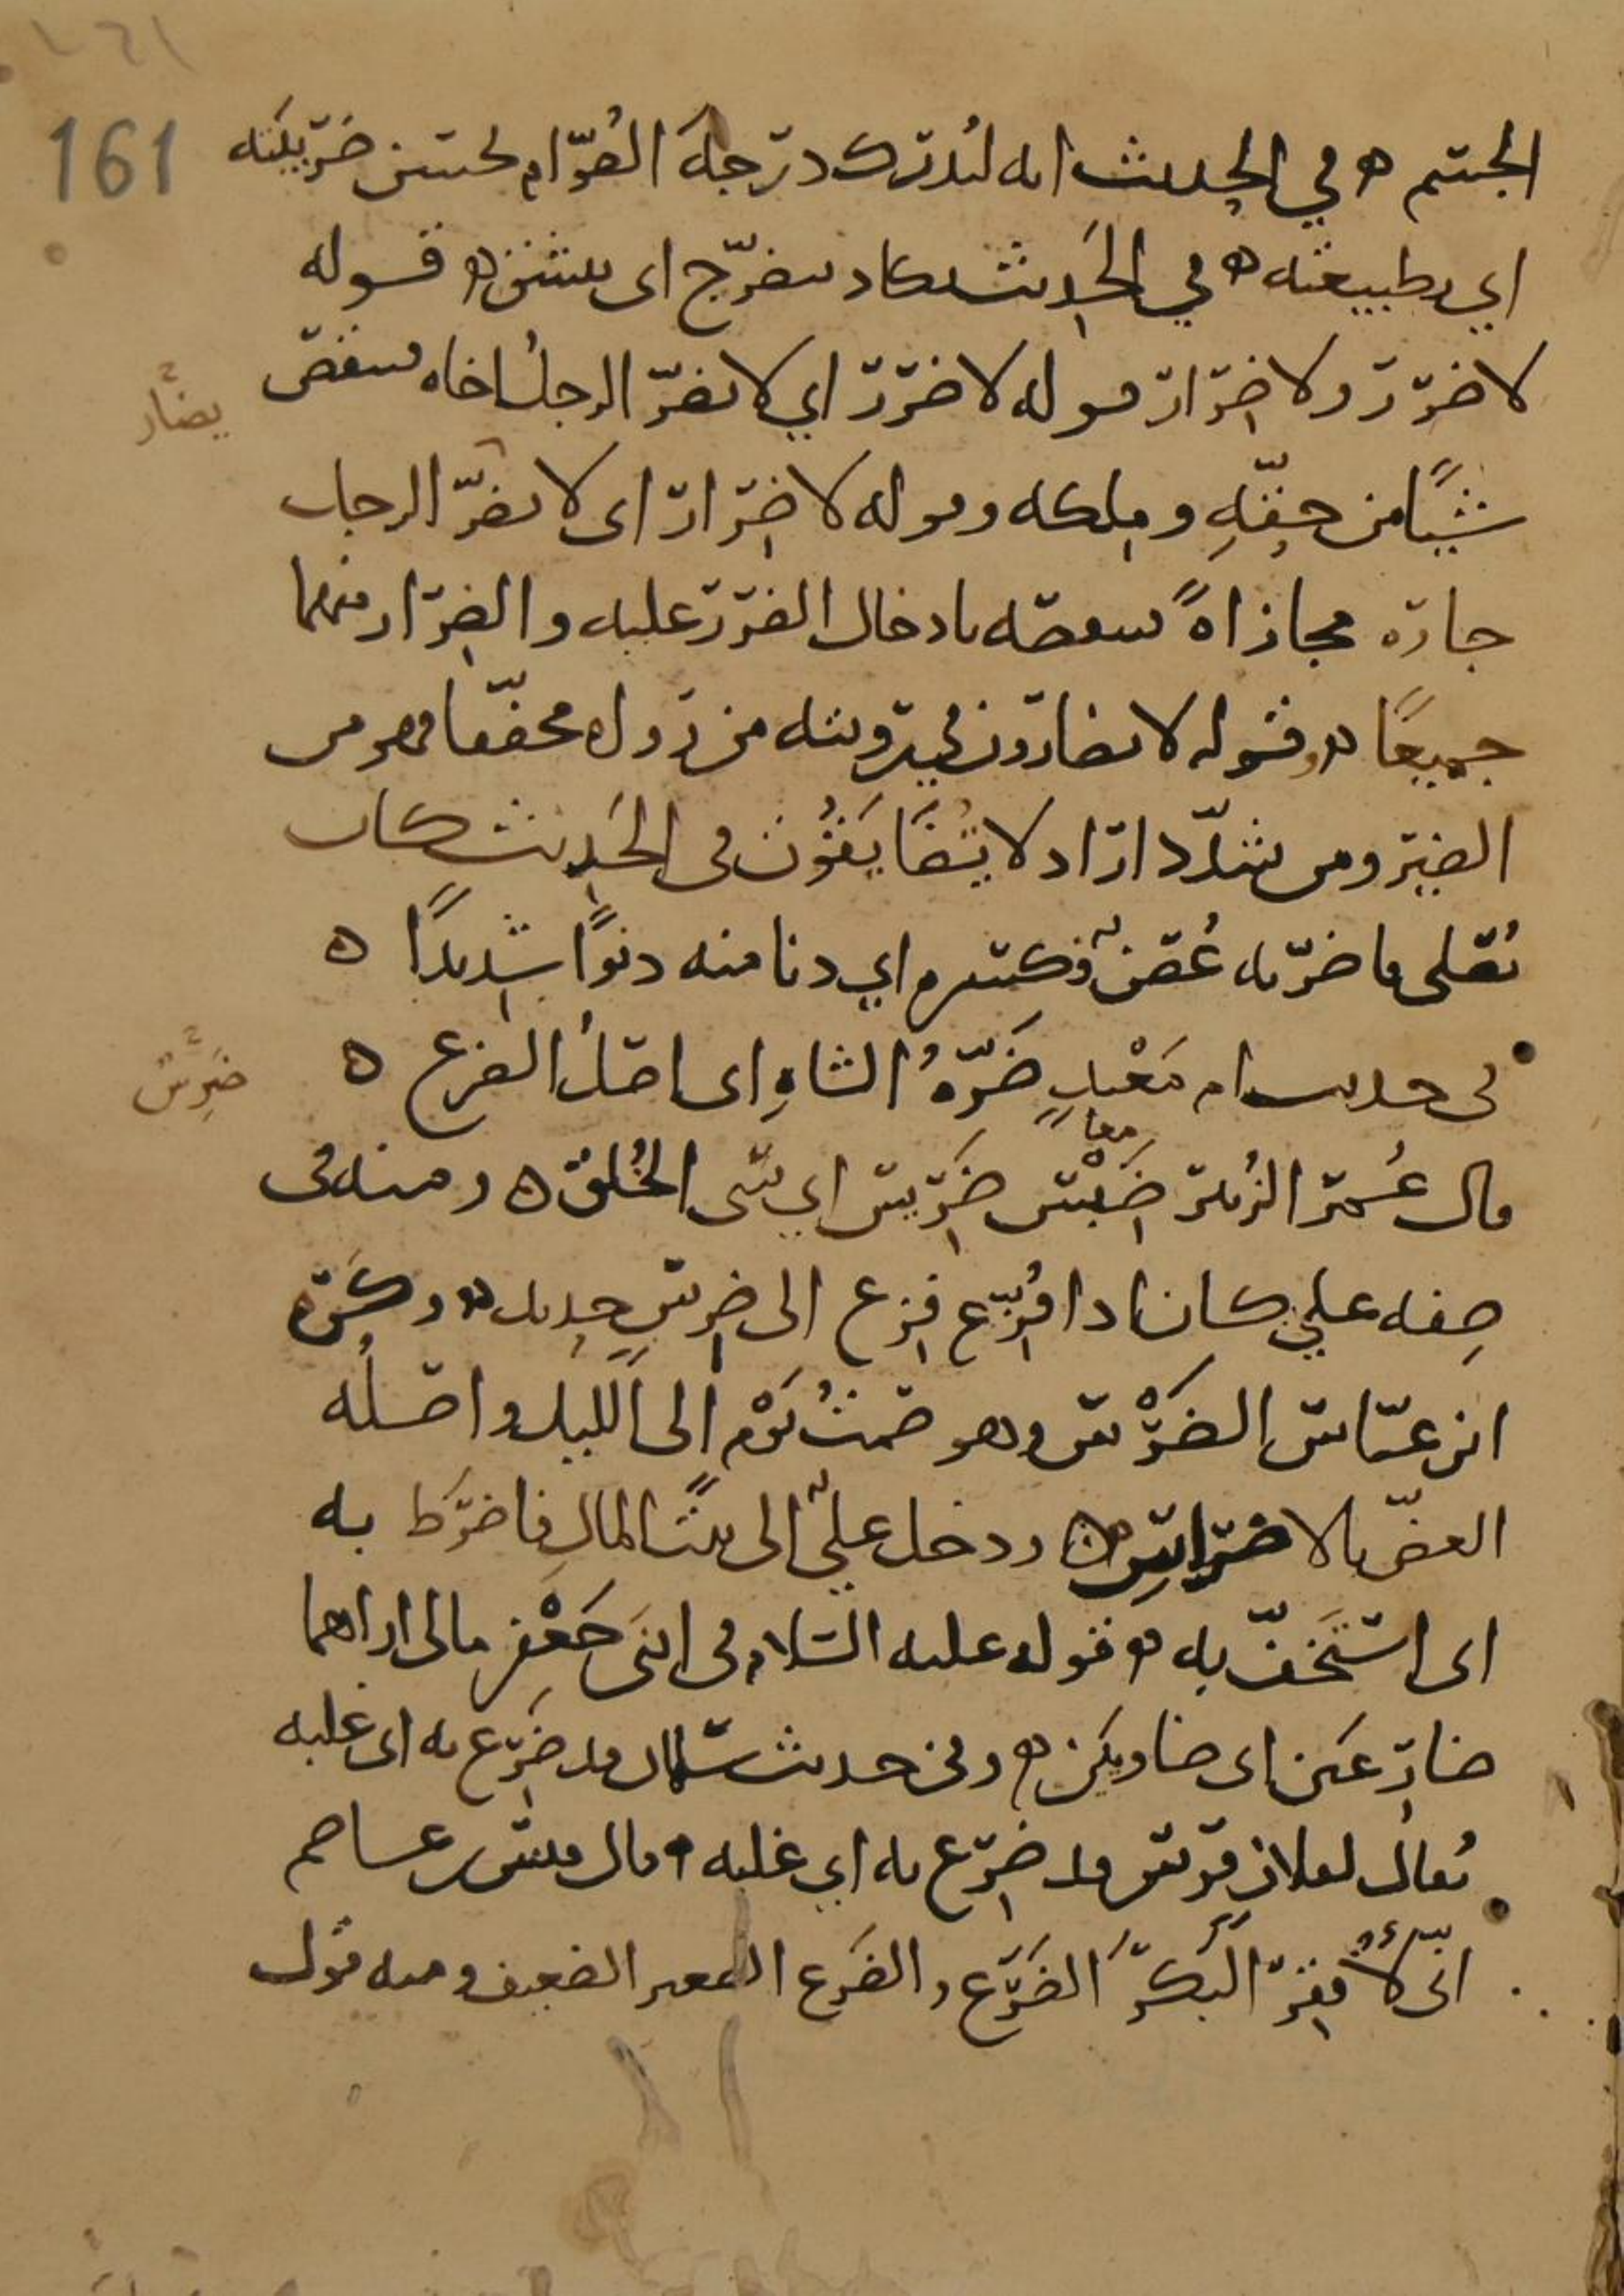 161
الجسم ه في الحديث انه ليُدرك درجة الصُوّام لحسن ضريبته
اي بطبيعته ه في الحَديث يكاد يتضرّج اى ينشق ه قوله
لا ضرر ولا ضِرار قوله لا ضرر اي لا يضرّ الرجلُ اخاه فينقص
يضارّ
شيًا من حقّهِ و مِلكه وقوله لا ضِرار اى لا يضرّ الرجل
جاره مجازاةً ينقصه بادخال الضرر عليه والضِرار منهما
جميعًا ه وقوله لا تضارون في رويته من رواه مخففا فهو من
الضير ومن شدّد اراد لا تُضَايَقُون فى الحَديث كان
يُصَلى فاضرّ به غُصنٌ فكسره اي دنا منه دنوًا شديدًا ه
فى حديث ام مَعْبدٍ ضَرّةُ الشاهِ اى اصلُ الضرع ه
ضَرِسٌ
قال عُمر الزُبير ضَبْس ضَرِس اي سَيّئ الخُلق ه ومنه فى
معا
صِفه علي كان اذا فُزِّع فزع الى ضِرسٍ حديد ه وكَره
ابن عبّاس الضَرْس وهو صَمتُ يَوْم الى الليل واصلُه
العضّ بالاضراسِ ه ودخل عليٌّ الى بيت المالِ فاضرط به
اى استَخفّ به ه قوله عليه السلام فى ابنَى جَعْفر مالى اراهما
ضارعَين اى ضاويين ه وفى حديث سلمان قد ضَرِع به اى غلبه
يُقال لفلانٍ فرس قد ضرِع به اي غلبه ه قال قيس بن عاصم
انّى لأُفقِرُ البَكرَ الضَرَع والضَرَع البعير الضعيف ومنه قول